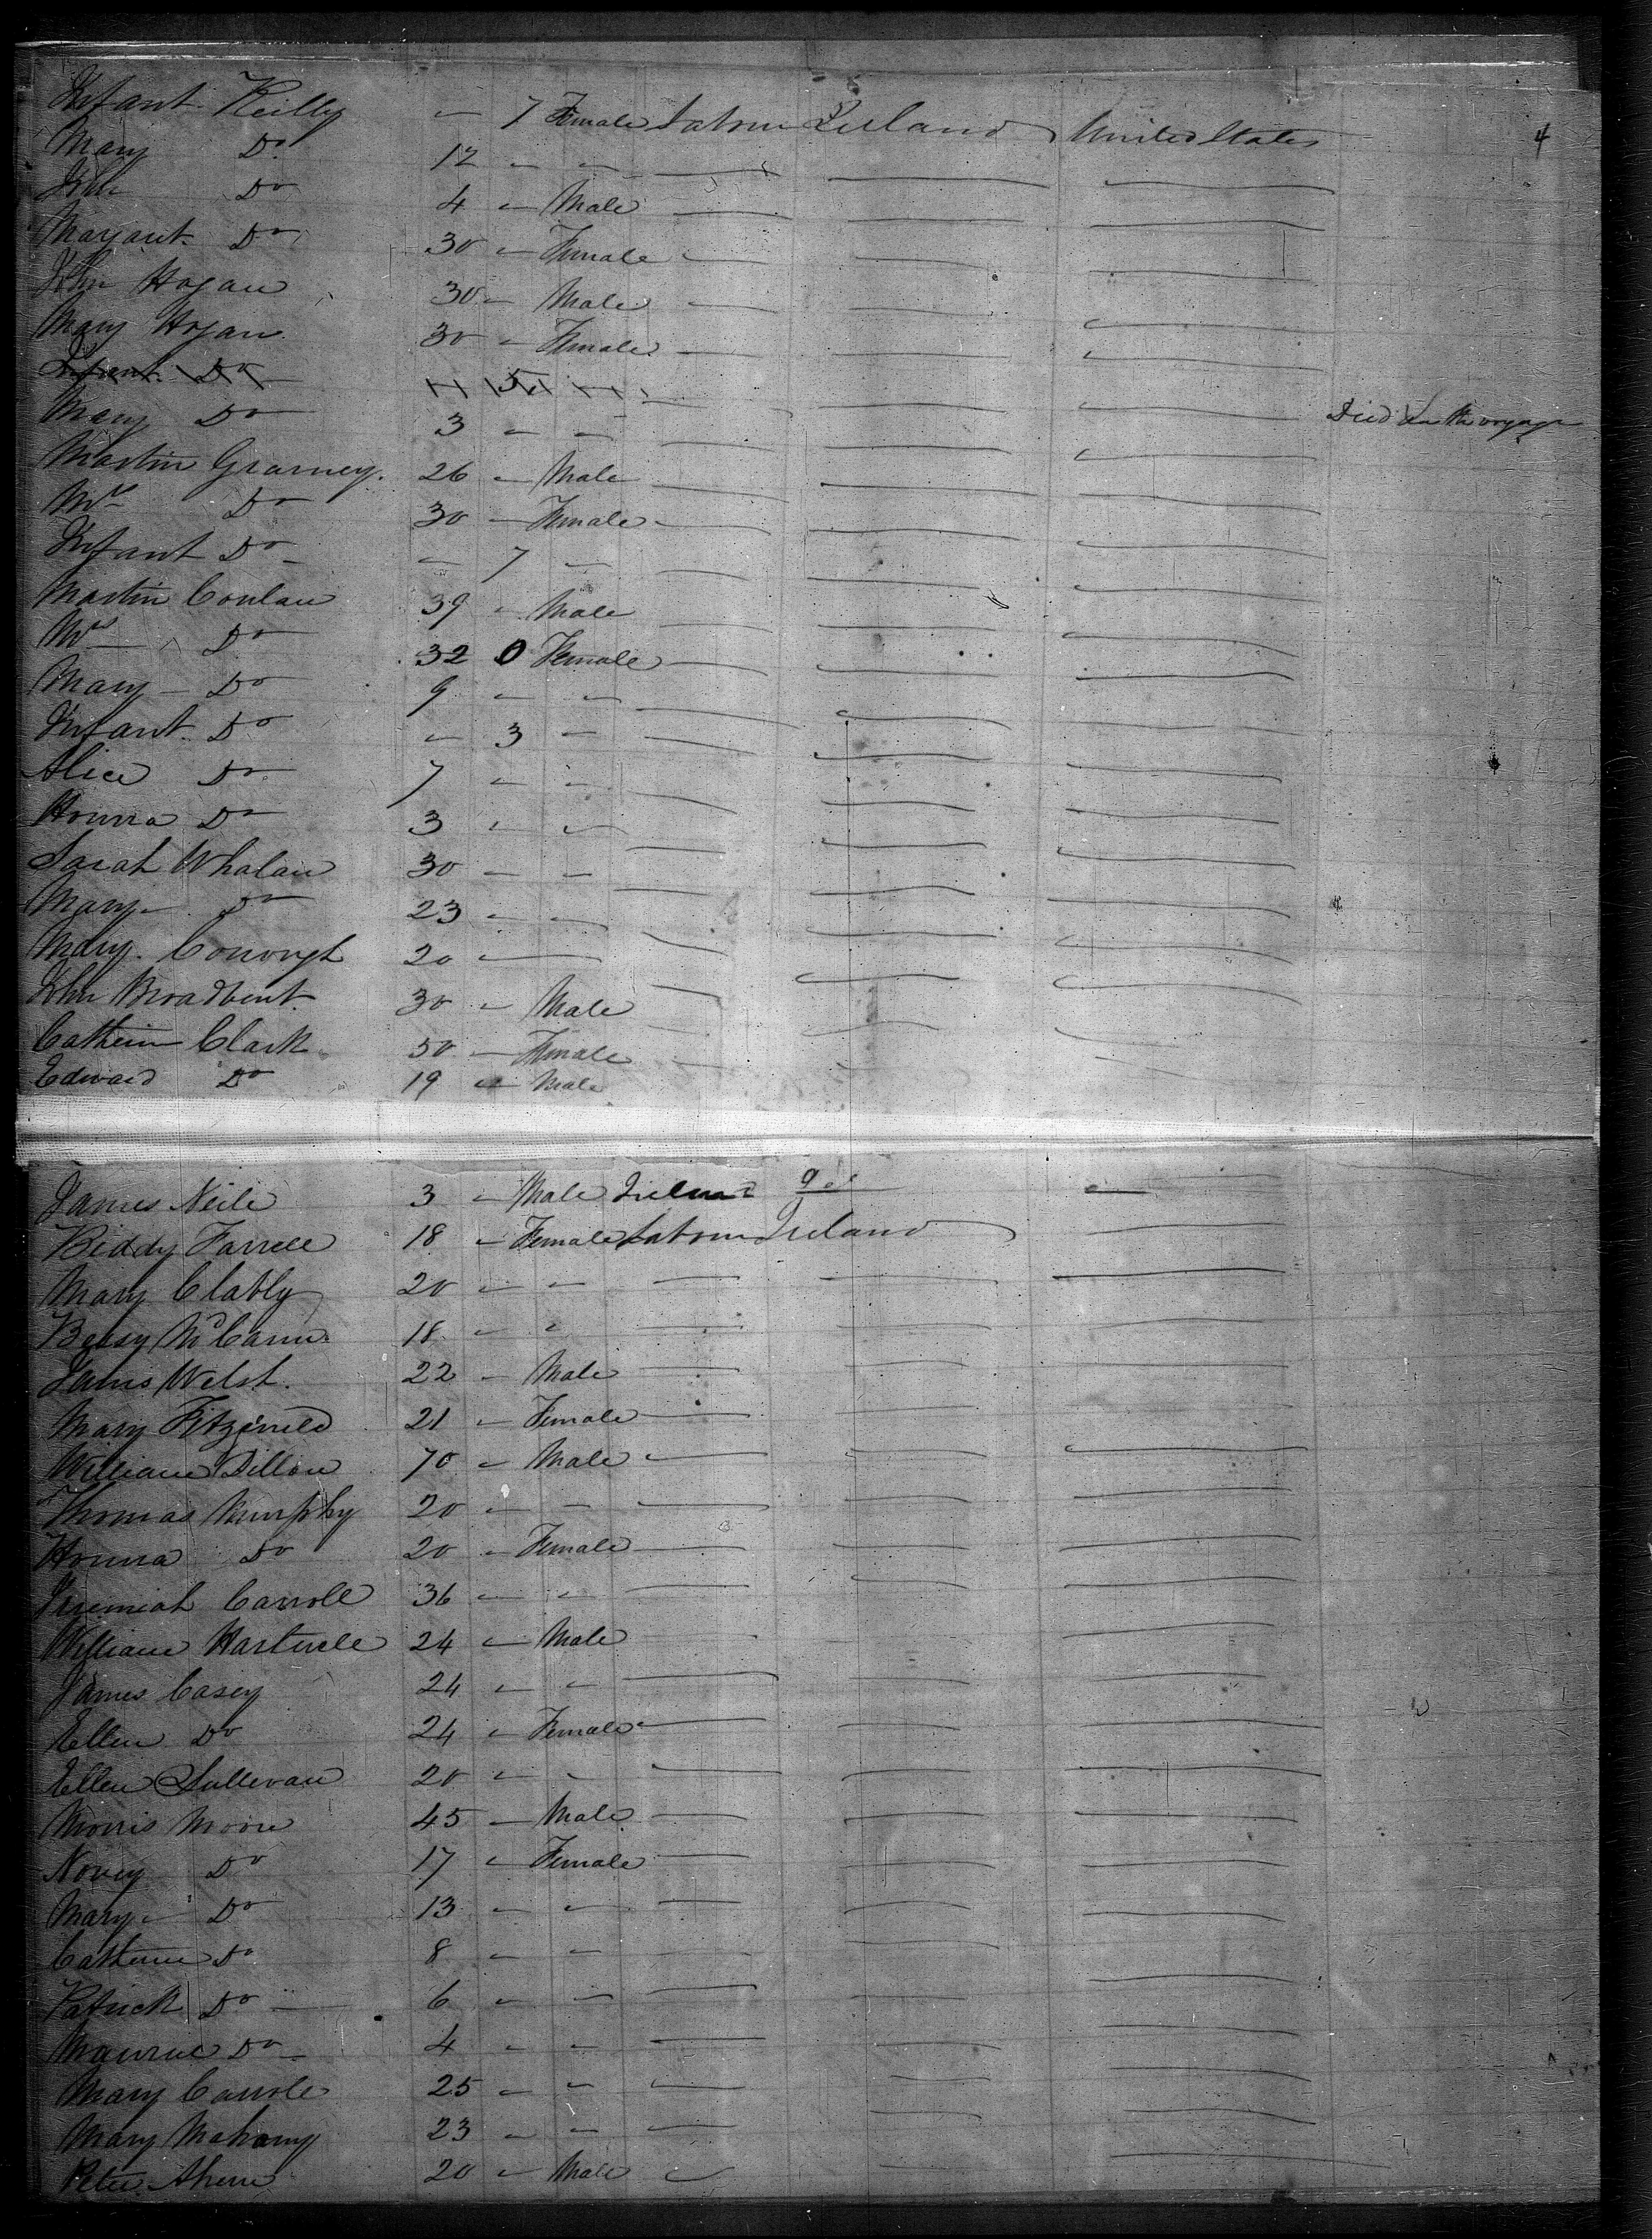 Infant Reilly — 7 Female Labour Ireland United States 4
Mary Do 12 — —
John Do 4 — Male
Margaret Do 30 — Female
John Hogan 30 — Male
Mary Hogan 30 — Female
Infant Do
Mary Do 3 — — Died on the voyage
Martin Grarney. 26 — Male
Mrs Do 30 — Female
Infant Do — 7 —
Martin Conlan 39 — Male
Mrs Do 32 0 Female
Mary Do 9 — —
Infant Do — 3 —
Alice Do 7 — —
Honnra Do 3 — —
Sarah Whalan 30 — —
Mary Do 23 — —
Mary Conough 20 —
John Broadbent 30 — Male
Cathrin Clark 50 — Female
Edward Do 19 — Male
James Neile 3 — Male Ireland
Biddy Farrell 18 — Female Labour Ireland
Mary Clably 20 — —
Bessy McCann 18 — —
James Welsh 22 — Male
Mary Fitzgerald 21 — Female
William Dillon 70 — Male
Thomas Murphy 20 — —
Honnra Do 20 — Female
Jeremiah Carroll 36 — —
William Hartwell 24 — Male
James Casey 24 — —
Ellen Do 24 — Female
Ellen Sullivan 20 — —
Morris Moore 45 — Male
Novey Do 17 — Female
Mary Do 13 — —
Catherine Do 8 — —
Patrick Do 6 — —
Maurice Do 4 — —
Mary Carroll 25 — —
Mary Mahony 23 — —
Peter Ahern 20 — Male